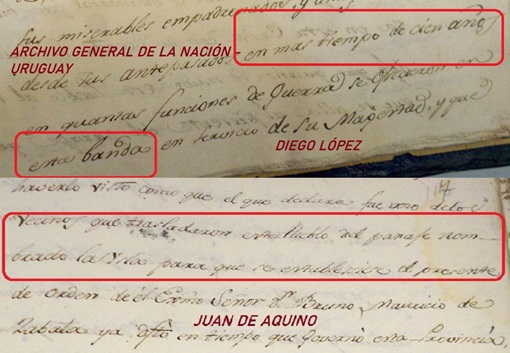 sus miserables empadurados y ann
ARCHIVO GENERAL DE LA NACIÓN-
URUGUAY
en mas tiempo de cien años
desde sus antepasados
en quantas funciones de Guerra se ofrecieron en
esta banda en servicio de Su Magestad, y que
DIEGO LÓPEZ
haverlo visto como que el que declara fue uno de los
vecinos que trasladaron este Pueblo del parage nom-
brado la Villa para que se estableciese el presente
de orden de el Exmo Señor Dn Bruno Mauricio de
JUAN DE AQUINO
Zabala ya difto en tiempo que Governó esta Provincia,